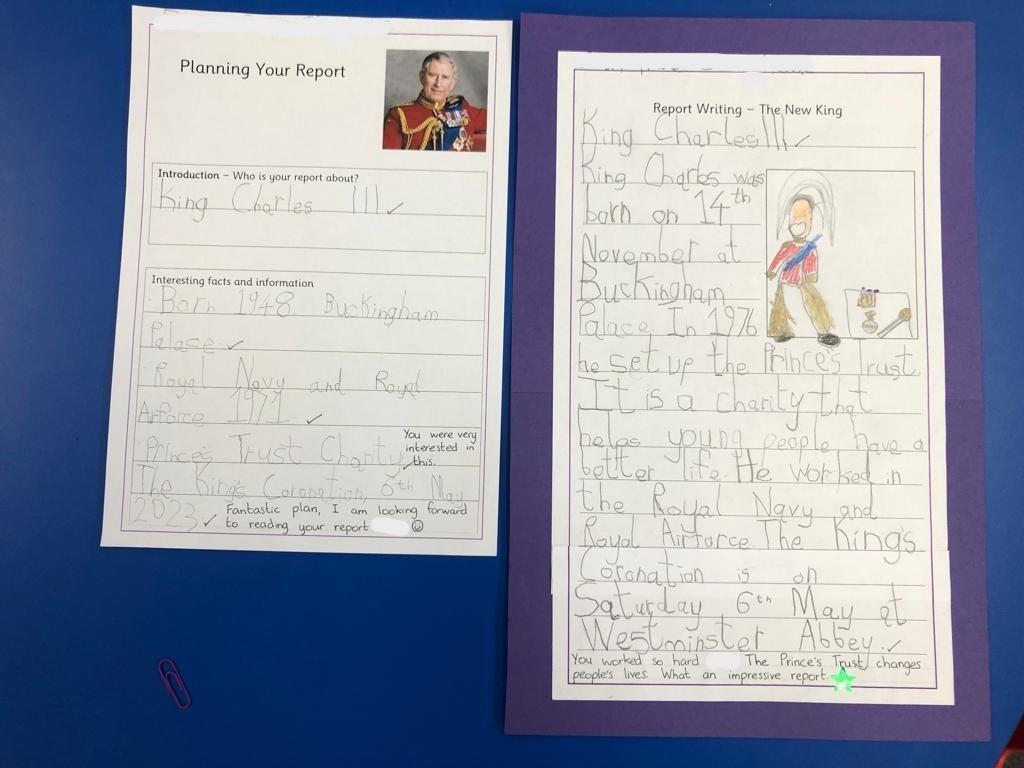 Planning Your Report
Introduction – Who is your report about?
King Charles III ✓
Interesting facts and information
· Born 1948. Buckingham
Palace. ✓
· Royal Navy and Royal
Airforce 1971 ✓
· Prince's Trust Charity ✓
You were very
interested in
this.
The King's Coronation, 6th May
2023 ✓
Fantastic plan, I am looking forward
to reading your report
Report Writing – The New King
King Charles III ✓
King Charles was
born on 14th
November at
Buckingham
Palace In 1976
he set up the Prince's Trust.
It is a charity that
helps young people have a
better life. He worked in
the Royal Navy and
Royal Airforce The King's
Coronation is on
Saturday 6th May at
Westminster Abbey. ✓
You worked so hard
The Prince's Trust changes
people's lives. What an impressive report.